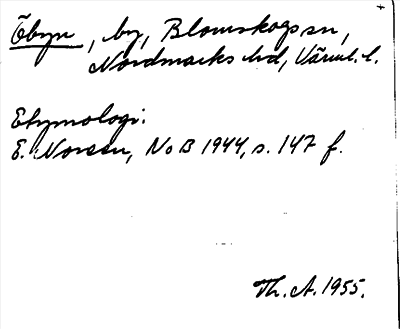 Õbyn, by, Blomskogs sn,
Nordmarks hd, Värml. l.
Etymologi:
E. Noreen, NoB 1944, s. 147 f.
Th. A. 1955.